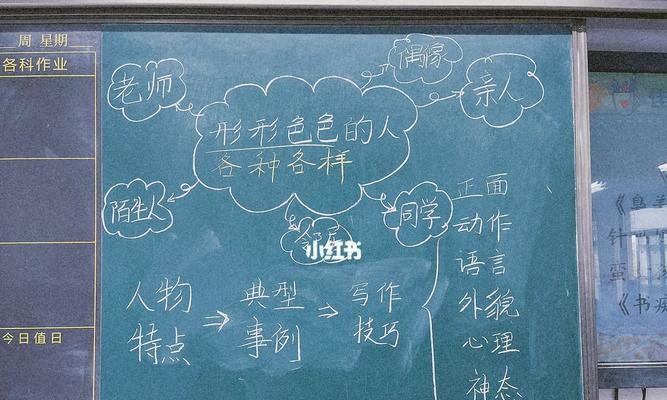 周 星期
各科作业
今日值日
偶像
老师
亲人
形形色色的人
各种各样
陌生人
同学
小红书
人物
特点
⇒
典型
事例
⇒
写作
技巧
正面
动作
语言
外貌
心理
神态